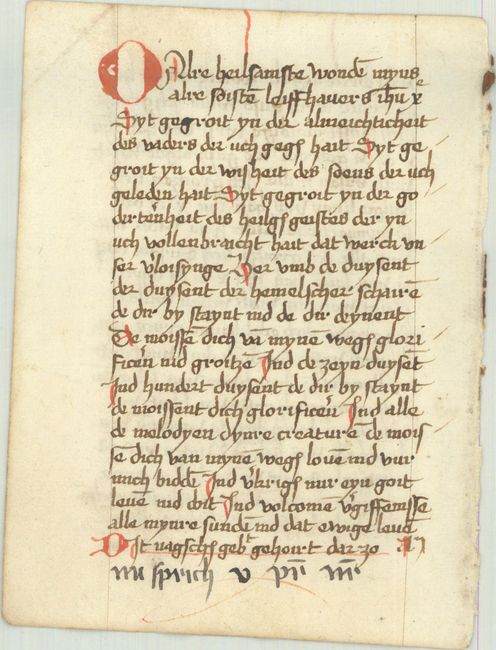 O Alre heilsamste wondẽ myns
alre soistẽ leiffhauers ihũ xͤ
Syt gegroit yn der almeichticheit
des vaders der uch gegȝ hait Syt ge
groit yn der wisheit des soens der uch
geleden hait Syt gegroit yn der go
dertẽnheit des heilgȝ geistes der yn
uch vollenbraicht hait dat werch vn
ser v̓loisynge Her vmb de duysent
der duysent der hemelscher schairẽ
de dir by staynt ind de dir deynent
De moissẽ dich vã mynẽ wegȝ glori
ficeñ ind groitzẽ Ind de zeyn duysẽt
Ind hundert duysent de dir by staynt
de moissent dich glorificeñ Ind alle
de melodyen dynre creaturẽ de mois
sẽ dich van mynẽ wegȝ lovẽ ind vur
mich biddẽ Ind v̓krigȝ mir eyn goit
levẽ ind doit Ind volcomẽ v̓giffenisse
alle mynre sundẽ ind dat ewige levẽ
Dit nagschȝ gebt gehoirt dar zo
nu sprich v pr̃ nr̃